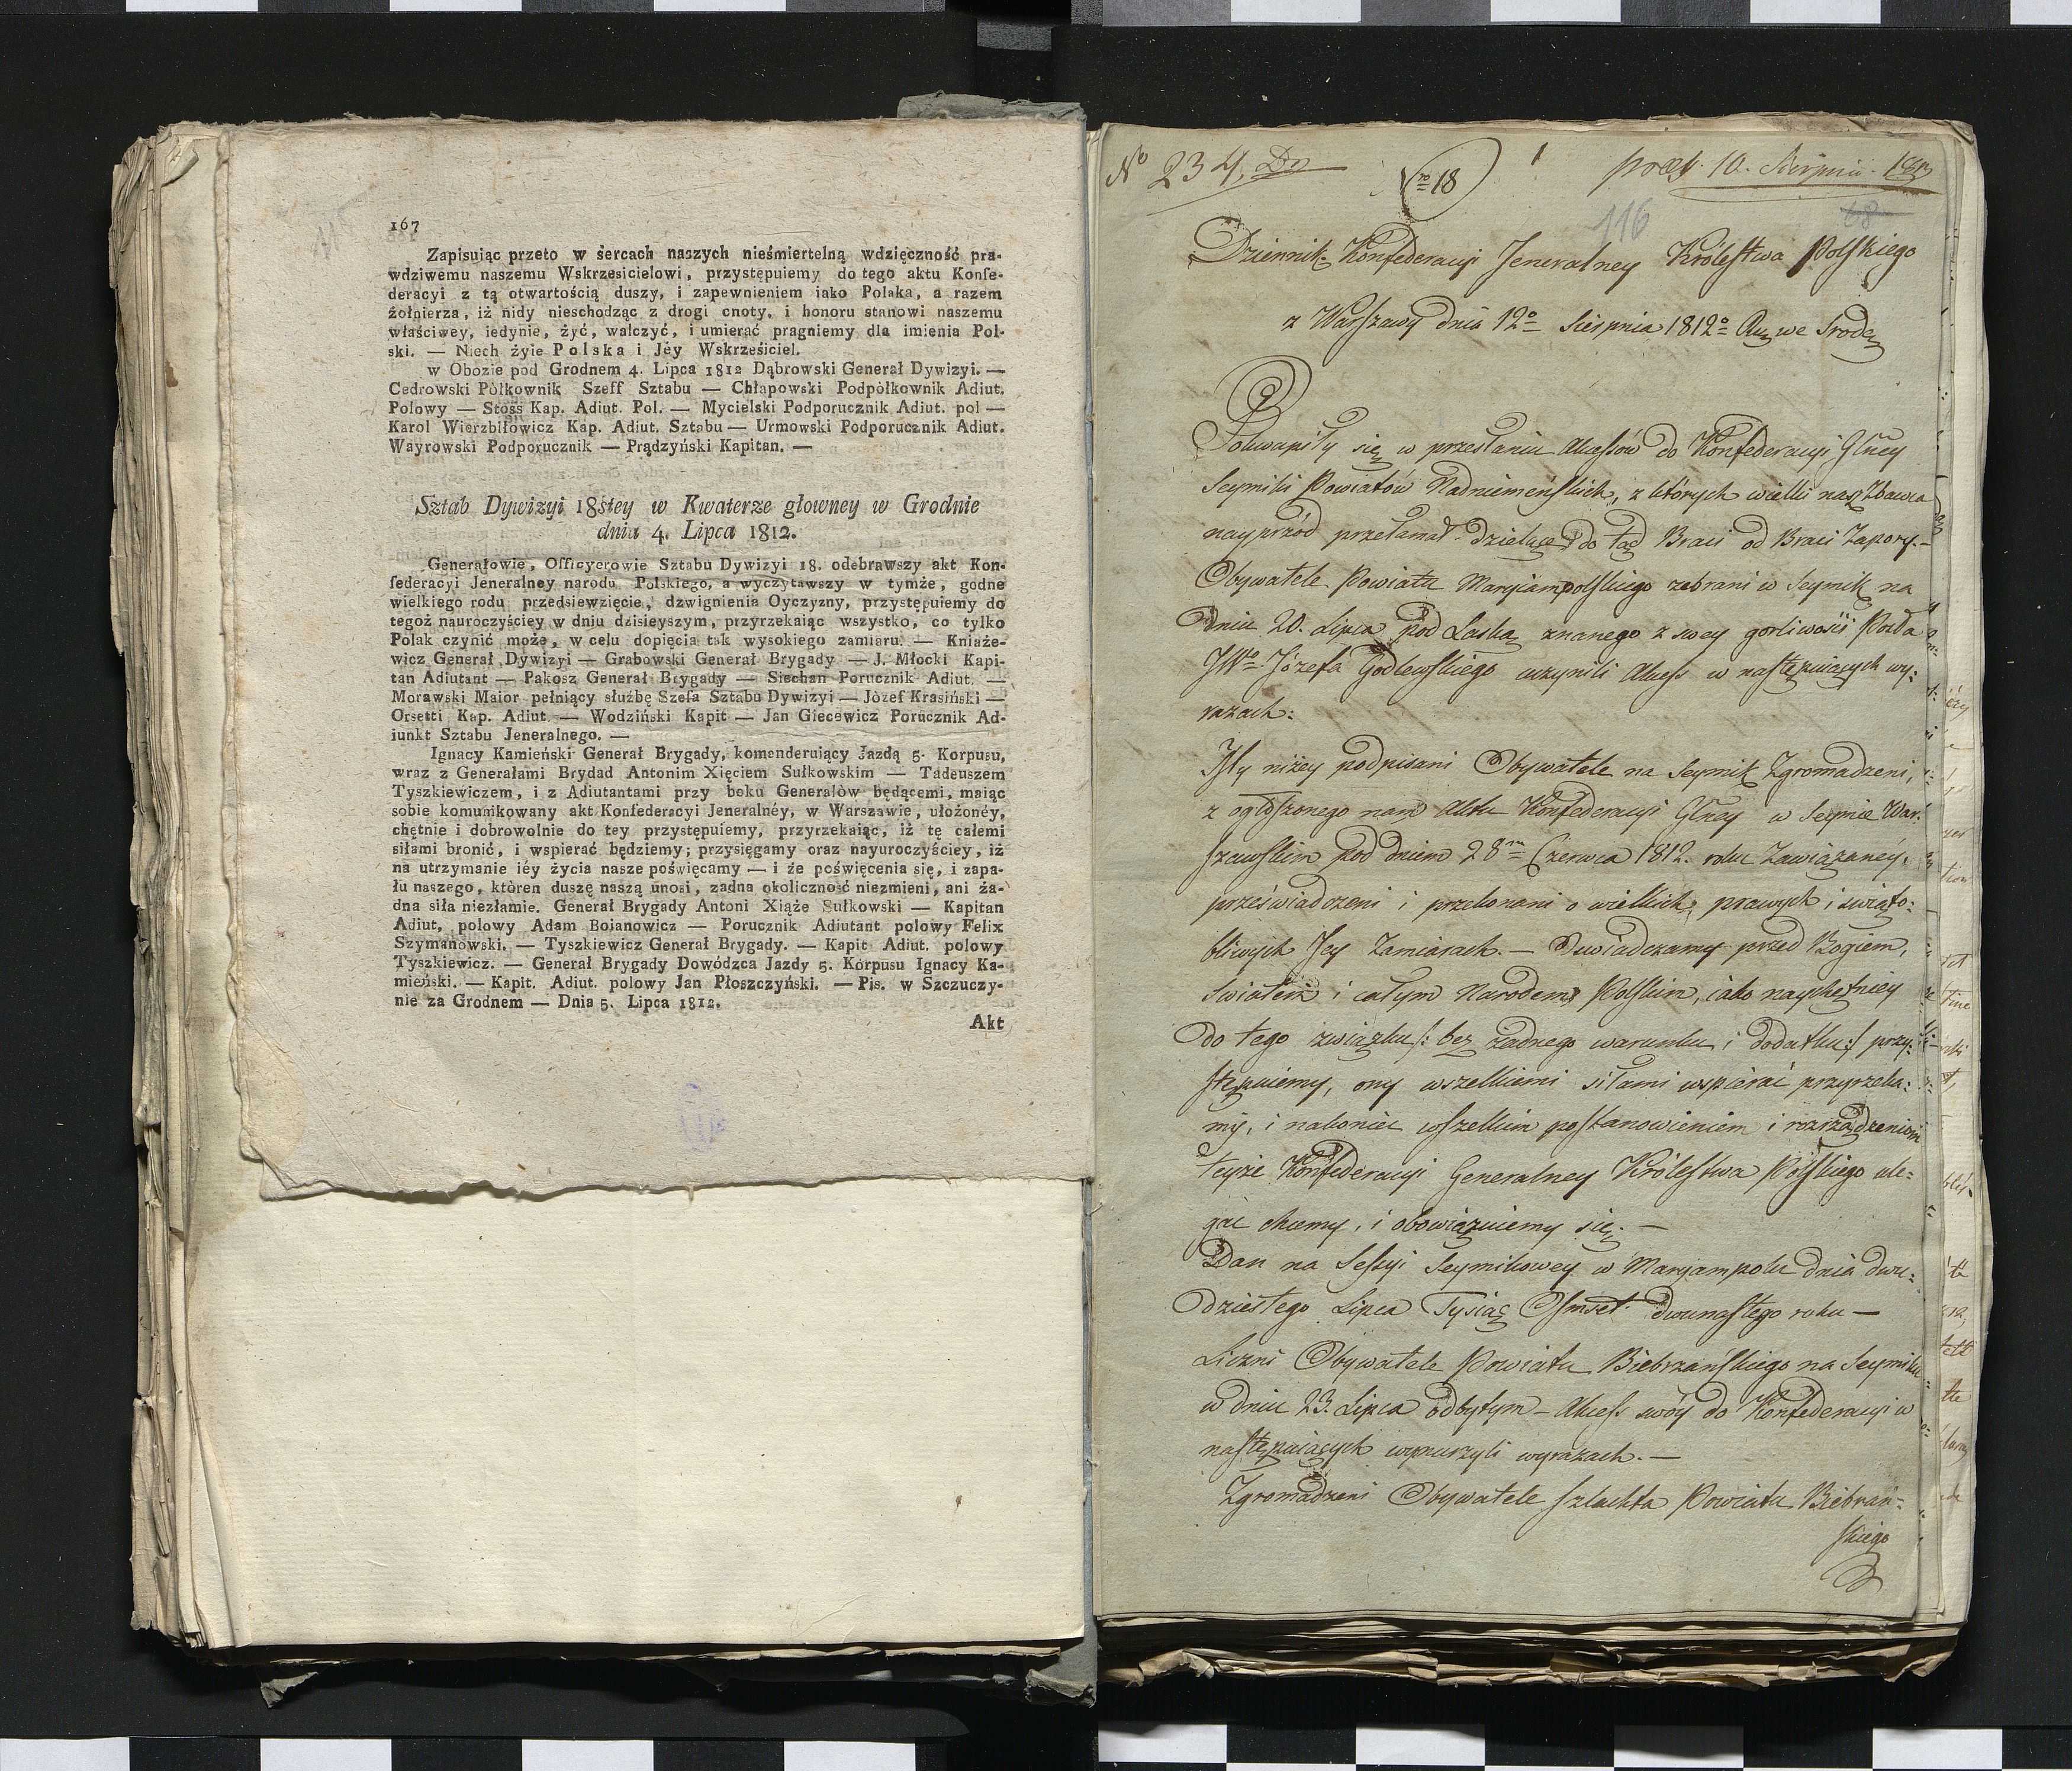 167
Zapisując przeto w sercach naszych nieśmiertelną wdzięczność pra-
wdziwemu naszemu Wskrzesicielowi, przystępuiemy do tego aktu Konfe-
deracyi z tą otwartością duszy, i zapewnieniem iako Polaka, a razem
żołnierza, iż nidy nieschodząc z drogi cnoty, i honoru stanowi naszemu
właściwey, iedynie, żyć, walczyć, i umierać pragniemy dla imienia Pol-
ski. — Niech żyie Polska i Jéy Wskrzesiciel.
w Obozie pod Grodnem 4. Lipca 1812 Dąbrowski Generał Dywizyi. —
Cedrowski Półkownik Szeff Sztabu — Chłapowski Podpółkownik Adiut.
Polowy — Stoss Kap. Adiut. Pol. — Mycielski Podporucznik Adiut. pol —
Karol Wierzbiłowicz Kap. Adiut. Sztabu — Urmowski Podporucznik Adiut.
Wayrowski Podporucznik — Prądzyński Kapitan. —
Sztab Dywizyi 18stey w Kwaterze głowney w Grodnie
dnia 4. Lipca 1812.
Generałowie, Officyerowie Sztabu Dywizyi 18. odebrawszy akt Kon-
federacyi Jeneralney narodu Polskiego, a wyczytawszy w tymże, godne
wielkiego rodu przedsiewzięcie, dzwignienia Oyczyzny, przystępuiemy do
tegoż nauroczyściey w dniu dzisieyszym, przyrzekaiąc wszystko, co tylko
Polak czynić może, w celu dopięcia tak wysokiego zamiaru. — Kniaże-
wicz Generał Dywizyi — Grabowski Generał Brygady — J. Młocki Kapi-
tan Adiutant — Pakosz Generał Brygady — Siechan Porucznik Adiut. —
Morawski Maior pełniący służbę Szefa Sztabu Dywizyi — Józef Krasiński —
Orsetti Kap. Adiut. — Wodziński Kapit — Jan Giecewicz Porucznik Ad-
iunkt Sztabu Jeneralnego. —
Ignacy Kamieński Generał Brygady, komenderuiący Jazdą 5. Korpusu,
wraz z Generałami Brydad Antonim Xięciem Sułkowskim — Tadeuszem
Tyszkiewiczem, i z Adiutantami przy boku Generałów będącemi, maiąc
sobie komunikowany akt Konfederacyi Jeneralnéy, w Warszawie, ułożonéy,
chętnie i dobrowolnie do tey przystępuiemy, przyrzekaiąc, iż tę całemi
siłami bronić, i wspierać będziemy; przysięgamy oraz nayuroczyściey, iż
na utrzymanie iéy życia nasze poświęcamy — i że poświęcenia się, i zapa-
łu naszego, któren duszę naszą unosi, żadna okoliczność niezmieni, ani ża-
dna siła niezłamie. Generał Brygady Antoni Xiąże Sułkowski — Kapitan
Adiut, polowy Adam Boianowicz — Porucznik Adiutant polowy Felix
Szymanowski. — Tyszkiewicz Generał Brygady. — Kapit Adiut. polowy
Tyszkiewicz. — Generał Brygady Dowódzca Jazdy 5. Korpusu Ignacy Ka-
mieński. — Kapit. Adiut. polowy Jan Płoszczyński. — Pis. w Szczuczy-
nie za Grodnem — Dnia 5. Lipca 1812.
Akt
No 234. Dn Nro 18 præs. 10. Sierpnia 1812
116 68
Dziennik Konfederacyi Jeneralney Królestwa Polskiego
z Warszawy dnia 12o Sierpnia 1812o Ru we Srodę
Pokwapiły się w przesłaniu Akcessów do Konfederacyi Glney
Seymiki Powiatów Nadniemeńskich, z których wielki nasz Zbawca
nayprzód przełamał dzielące do tąd Braci od Braci Zapory. —
Obywatele Powiatu Maryiampolskiego zebrani w Seymik na
Dniu 20. Lipca pod Laską znanego z swey gorliwości Posła
JWo Józefa Godlewskiego uczynili Akcess w następuiących wy:
razach:
My niżey podpisani Obywatele na Seymik Zgromadzeni,
z ogłoszonego nam Aktu Konfederacyi Glney w Seymie War:
szawskim pod dniem 28m Czerwca 1812. roku Zawiązanéy,
przeświadczeni i przekonani o wielkich, prawych i świąto:
bliwych Jey Zamiarach. — Oświadczamy przed Bogiem,
Swiatem i całym Narodem Polskim, iako naychętniey
do tego związku /: bez żadnego warunku i dodatku :/ przy:
stępuiemy, ony wszelkiemi siłami wspierać przyrzeka:
my, i nakoniec wszelkim postanowieniem i rozrządzeniom
teyże Konfederacyi Generalney Królestwa Polskiego ule=
gać chcemy, i obowiązuiemy się. —
Dan na Sessyi Seymikowey w Maryampolu dnia dwu:
dziestego Lipca Tysiąc Osmset dwunastego roku —
Liczni Obywatele Powiatu Biebrzańskiego na Seymiku
w dniu 23. Lipca odbytym — Akcess swóy do Konfederacyi w
następuiących wynurzyli wyrazach. —
Zgromadzeni Obywatele szlachta Powiatu Biebrzań=
skiego